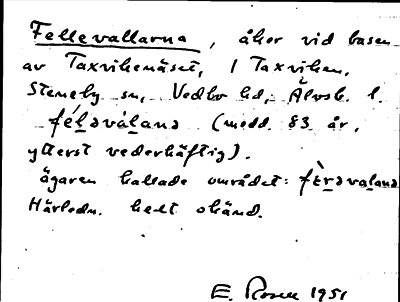 Fellevallarna, åker vid basen
av Taxvikenäset, / Taxviken,
Steneby sn, Vedbo hd, Älvsb. l.
félǝválanǝ (medd. 83 år,
ytterst vederhäftig).
ägaren kallade området: fèrǝvalanǝ
Härledn. helt okänd.
E. Rosell 1951